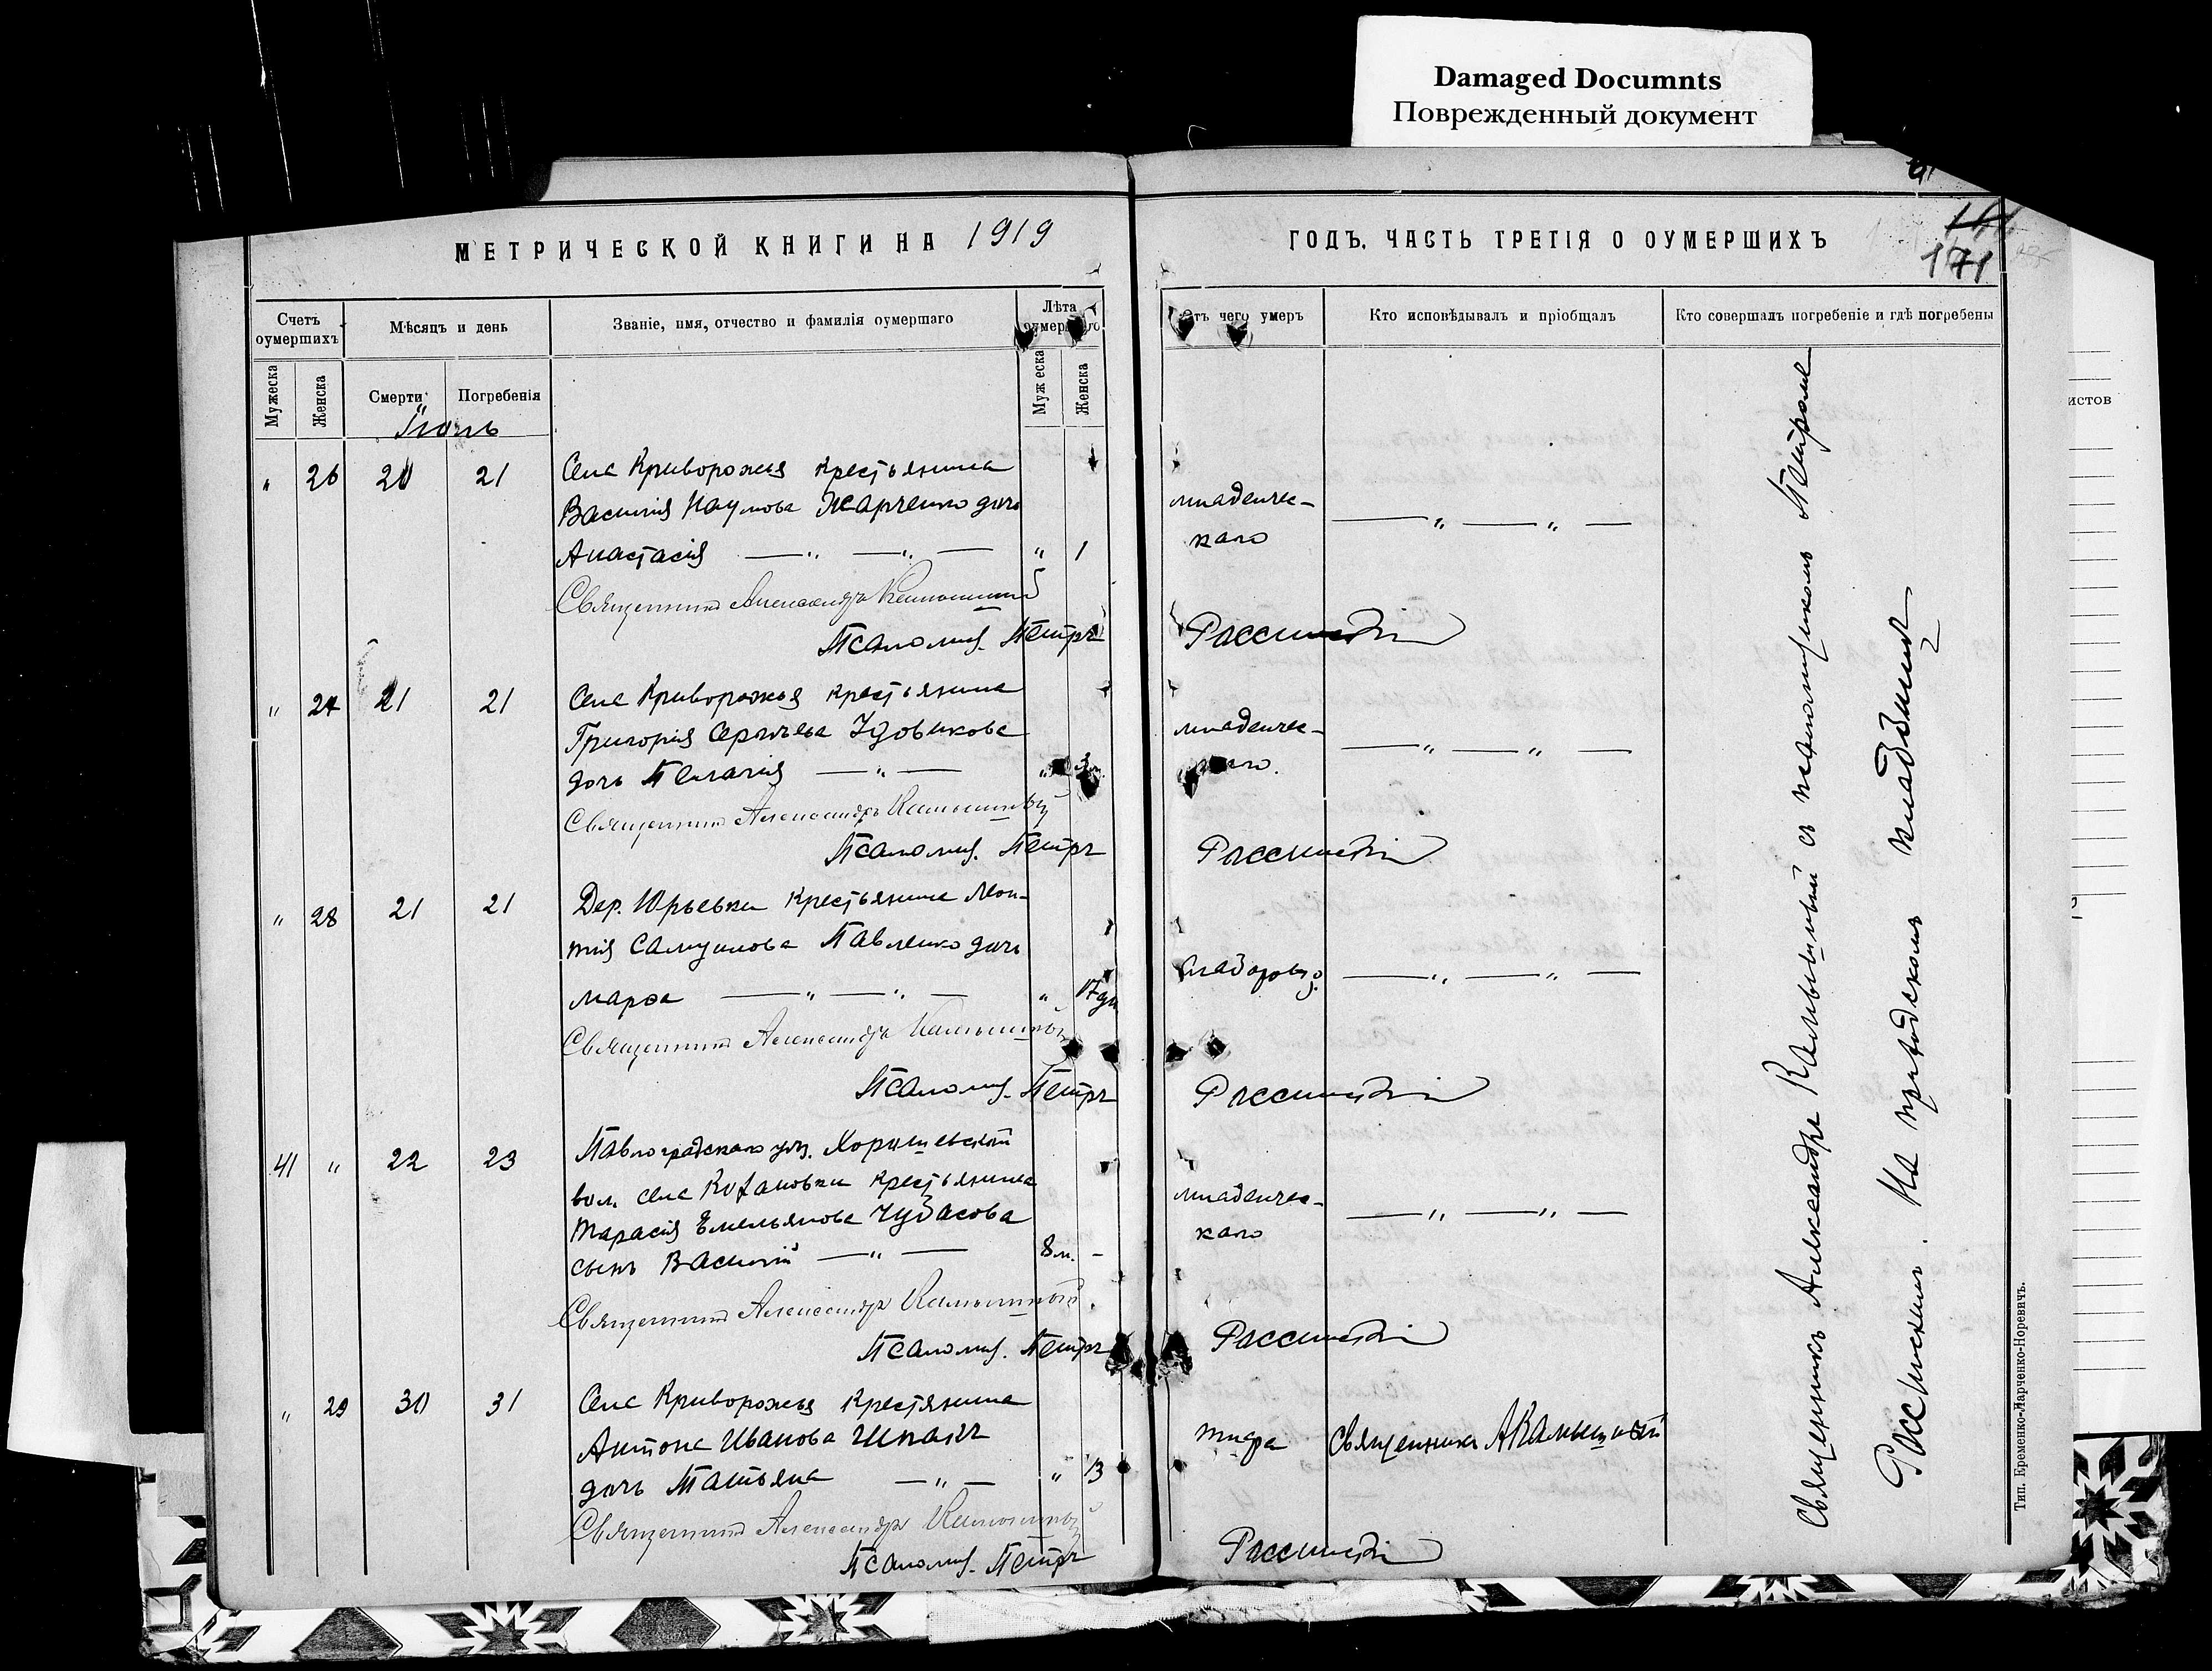 Damaged Documnts
Поврежденный документ
МЕТРИЧЕСКОЙ КНИГИ НА 1919
Счетъ оумершихъ
Мѣсяцъ и день
Званіе, имя, отчество и фамилія оумершаго
Лѣта оумершаго
Мужеска
Женска
Смерти
Погребенія
Муж еска
Женска
Іюль
" 26 20 21 Села Криворожья крестьянина
Василія Наумова Жарченко дочь
Анастасія — " — " — " 1
Священникъ Александръ Камышный
Псаломщ. Петръ
" 27 21 21 Села Криворожья крестьянина
Григорія Сергѣева Удовикова
дочь Пелагія — " —
Священникъ Александръ Камышный
Псаломщ. Петръ
" 28 21 21 Дер. Юрьевки крестьянина Леон-
тія Самуилова Павленко дочь
Марѳа — " — " — " 17 дн
Священникъ Александръ Камышный
Псаломщ. Петръ
41 " 22 23 Павлоградскаго уѣз.
вол. села крестьянина
Тарасія Емельянова Чубасова
сынъ Василій — " — 8 м. -
Священникъ Александръ Камышный
Псаломщ. Петръ
" 29 30 31 Села Криворожья крестянина
Антона Иванова Шпакъ
дочь Татьяна — " — " 13
Священникъ Александръ Камышный
Псаломщ. Петръ
ГОДЪ. ЧАСТЬ ТРЕТІЯ О ОУМЕРШИХЪ
171
Отъ чего умеръ
Кто исповѣдывалъ и пріобщалъ
Кто совершалъ погребеніе и гдѣ погребены
младенчес-
каго
— " — " —
Рассинскій
младенчес-
каго.
— " — " —
Рассинскій
— " — " —
Рассинскій
младенчес-
каго
— " — " —
Рассинскій
тифа
Священникъ А Камышный
Рассинскій
Священникъ Александръ Камышный съ псаломщикомъ Петромъ
Рассинскимъ. На приходскомъ кладбищѣ
Тип. Еременко-Марченко-Норевичъ.
истов